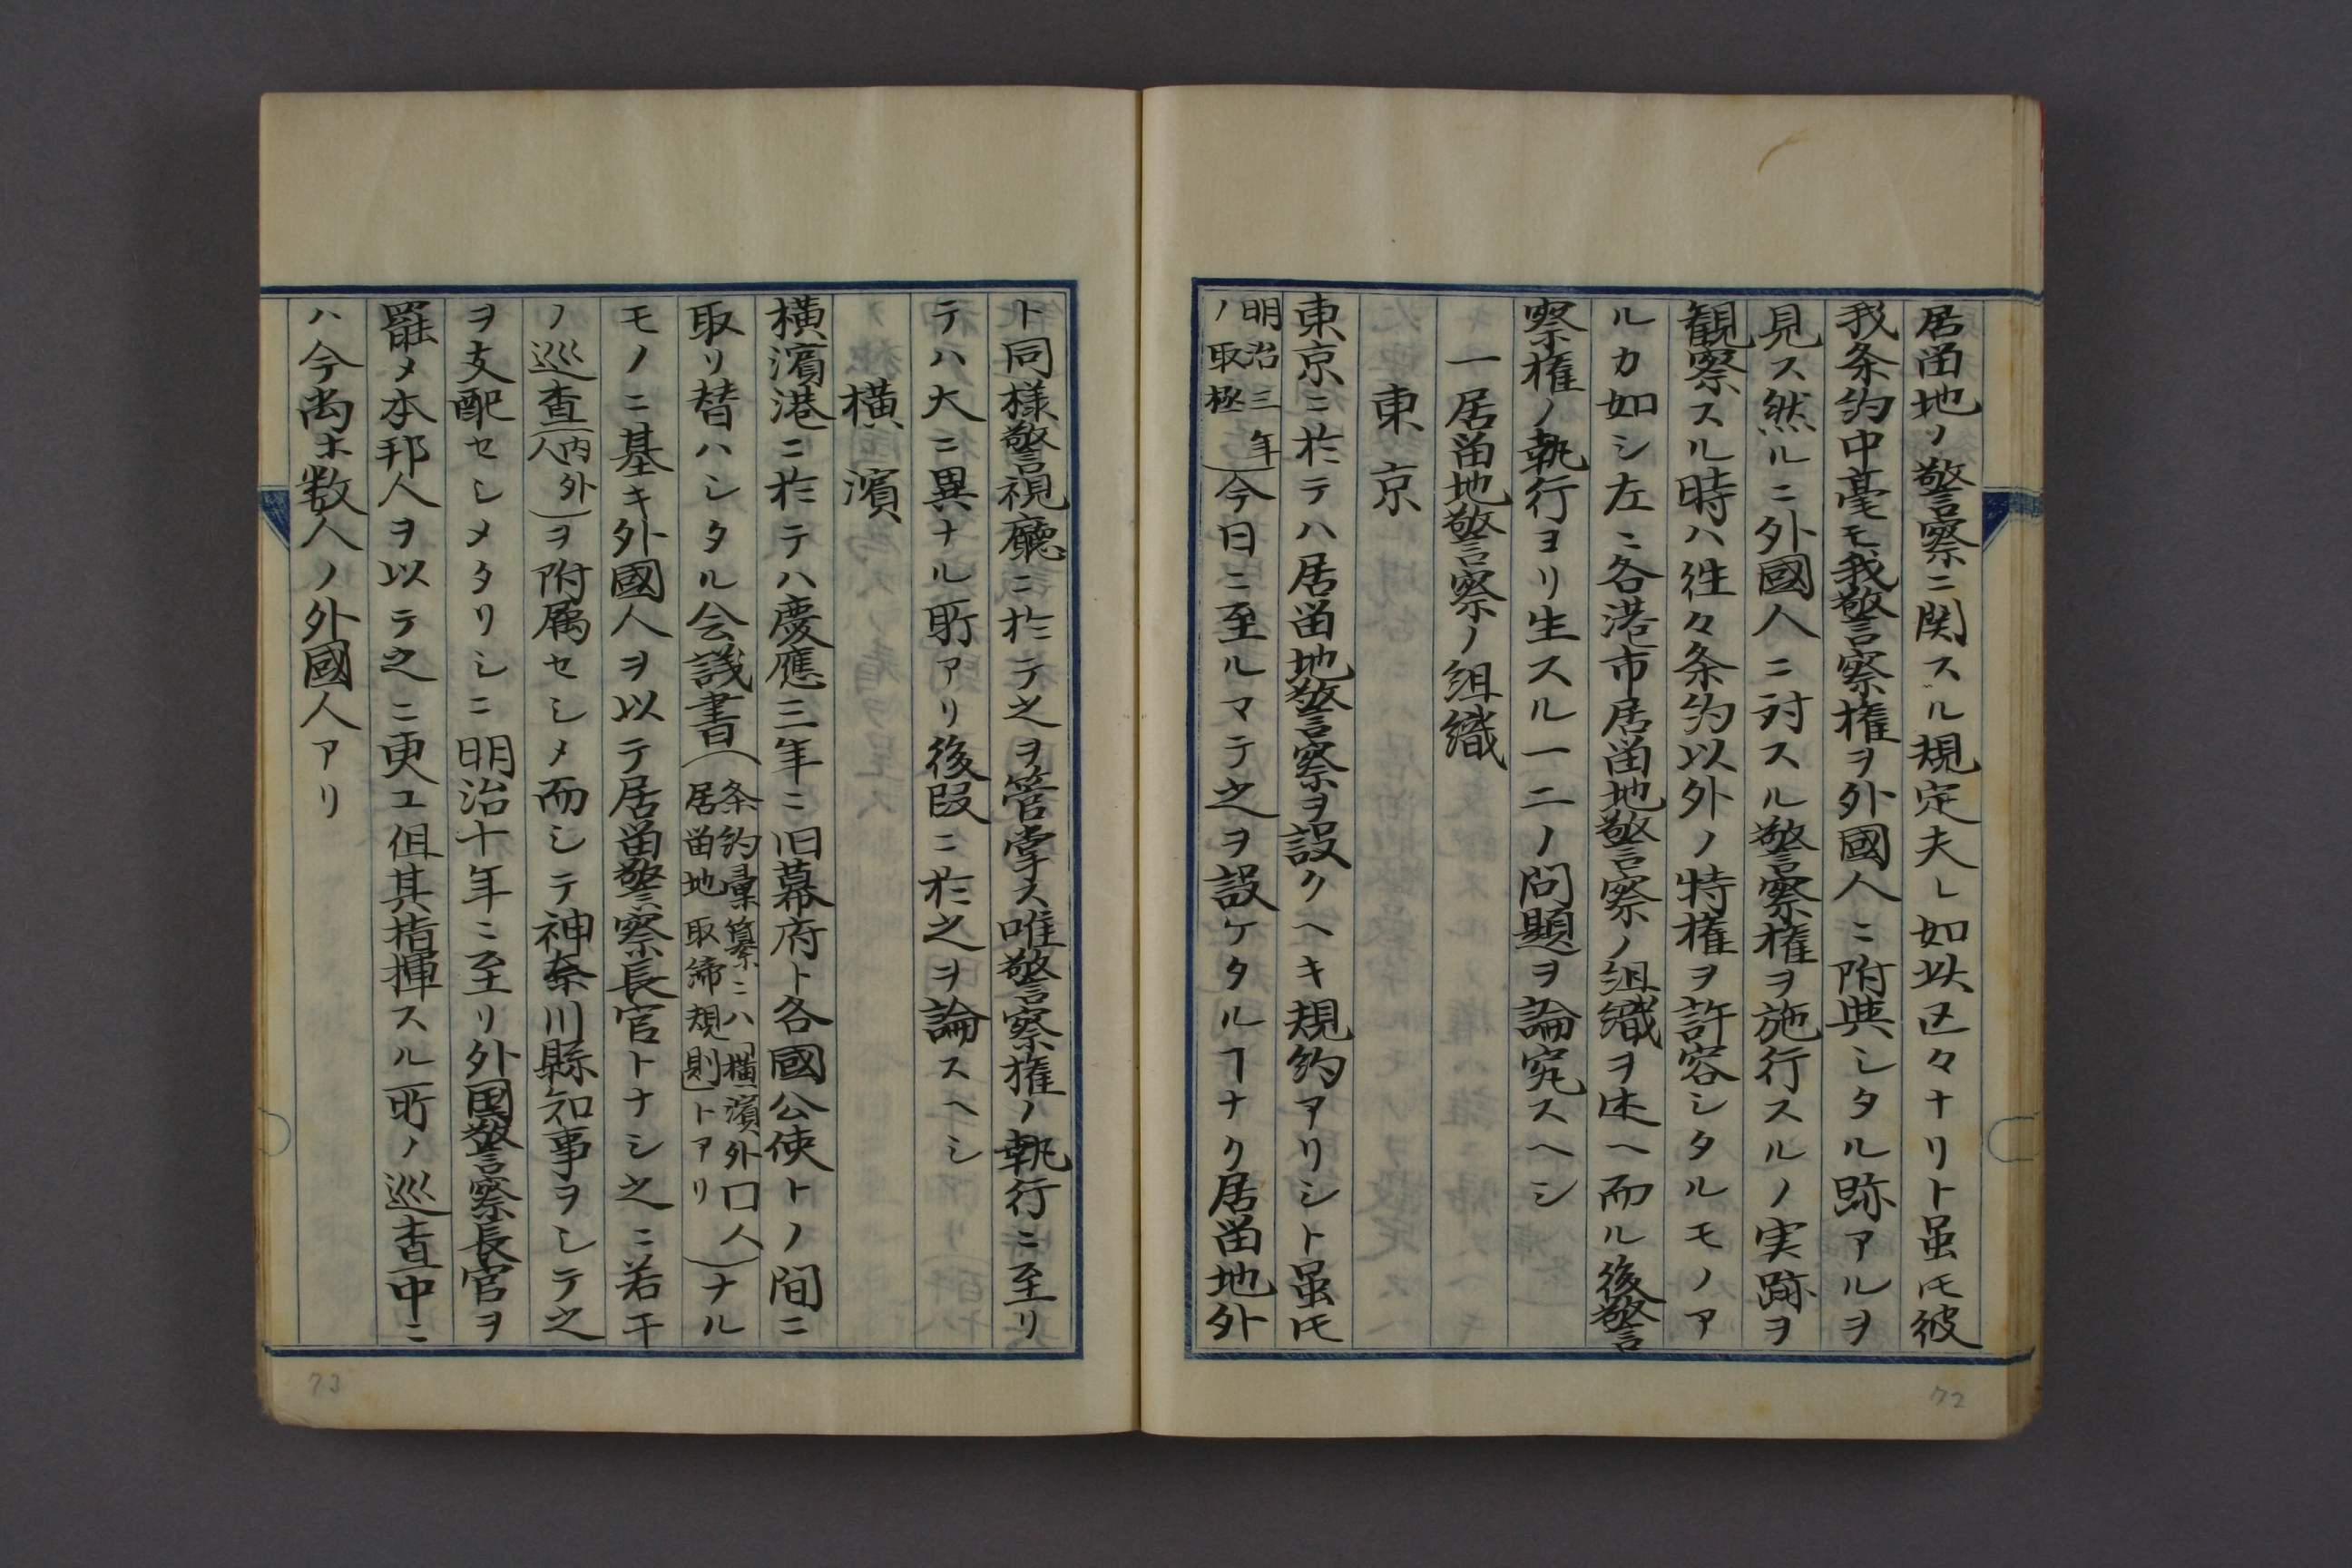 居留地ノ警察ニ関スル規定夫レ如此区々ナリト虽𪜈彼
我条約中毫モ我警察権ヲ外國人ニ附與シタル跡アルヲ
見ス然ルニ外國人ニ対スル警察権ヲ施行スルノ実跡ヲ
観察スル時ハ徃々条約以外ノ特権ヲ許容シタルモノア
ルカ如シ左ニ各港市居留地警察ノ組織ヲ述ヘ而ル後警
察権ノ執行ヨリ生スル一二ノ問題ヲ論究スヘシ
一居留地警察ノ組織
東京
東京ニ於テハ居留地警察ヲ設クヘキ規約アリシト虽𪜈
明治三年
ノ取極)今日ニ至ルマテ之ヲ設ケタルヿナク居留地外
ト同様警視廳ニ於テ之ヲ管掌ス唯警察権ノ執行ニ至リ
テハ大ニ異ナル所アリ後段ニ於之ヲ論スヘシ
横濱
横濱港ニ於テハ慶應三年ニ旧幕府ト各國公使トノ間ニ
取リ替ハシタル会議書(条約彙纂ニハ「横濱外口人
居留地取締規則」トアリ)ナル
モノニ基キ外國人ヲ以テ居留警察長官トナシ之ニ若干
ノ巡査(内外
人)ヲ附属セシメ而シテ神奈川縣知事ヲシテ之
ヲ支配セシメタリシニ明治十年ニ至リ外国警察長官ヲ
罷メ本邦人ヲ以テ之ニ更ユ但其指揮スル所ノ巡査中ニ
ハ今尚ホ数人ノ外國人アリ
72
73